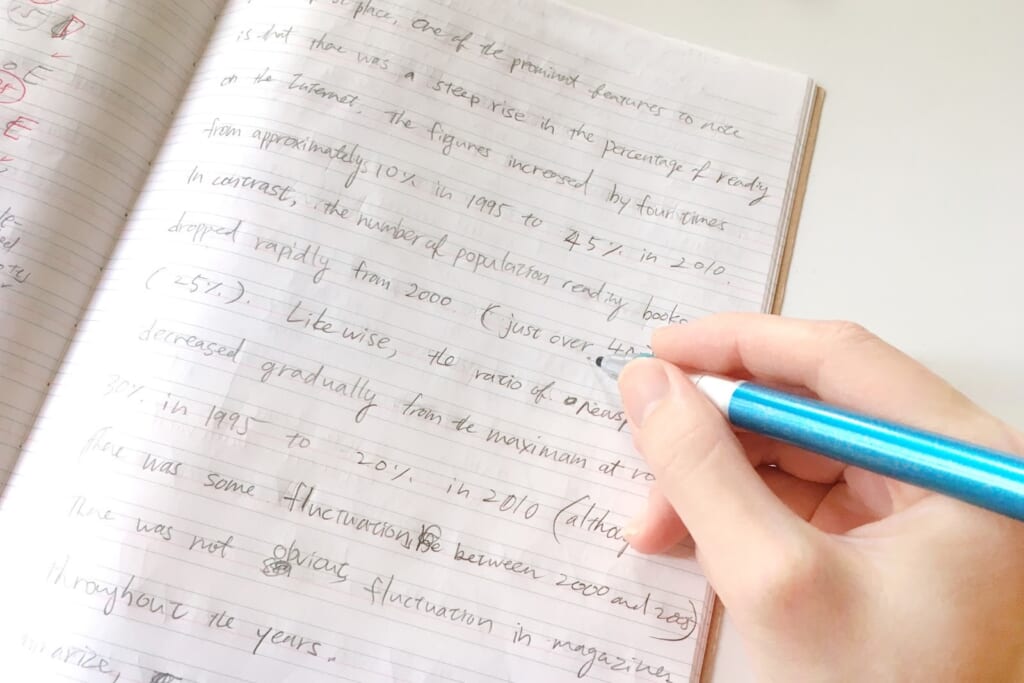 place, one of the prominent features to note
is that there was a steep rise in the percentage of reading
on the Internet. The figures increased by four times
from approximately 10% in 1995 to 45% in 2010.
In contrast, the number of population reading books
dropped rapidly from 2000. (just over
(25%). Likewise, the ratio of
decreased gradually from the maximam at
30% in 1995 to 20% in 2010 (although
There was some fluctuation between 2000 and 2005)
There was not obvious fluctuation in magazines
throughout the years.